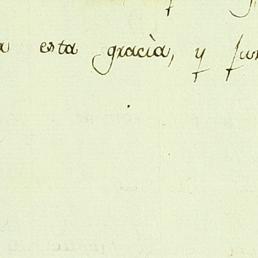 esta gracia, y